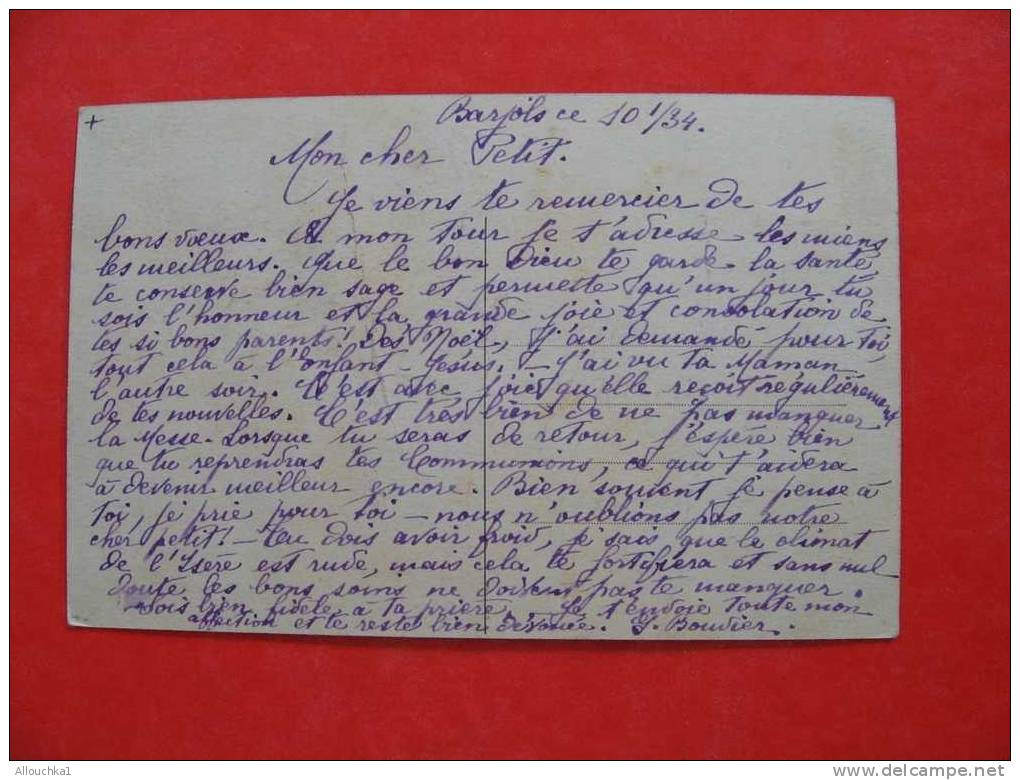 +
Barjols ce 10 1/34.
Mon cher Petit.
Je viens te remercier de tes
bons vœux. A mon tour je t'adresse les miens
les meilleurs. Que le bon Dieu te garde la santé,
te conserve bien sage et permette qu'un jour tu
sois l'honneur et la grande joie et consolation de
tes si bons parents! Dès Noël, j'ai demandé pour toi,
tout cela à l'Enfant-Jésus. - J'ai vu ta Maman
l'autre soir. C'est avec joie qu'elle reçoit régulièrement
de tes nouvelles. C'est très bien de ne pas manquer
la Messe. Lorsque tu seras de retour, j'espère bien
que tu reprendras tes Communions, ce qui t'aidera
à devenir meilleur encore. Bien souvent je pense à
toi, je prie pour toi - nous n'oublions pas notre
cher petit! - Tu dois avoir froid, je sais que le climat
de l'Isère est rude, mais cela te fortifiera et sans nul
doute les bons soins ne doivent pas te manquer.
Sois bien fidèle à ta prière. Je t'envoie toute mon
affection et te reste bien dévouée. J. Bouvier.
Allouchka1
www.delcampe.net